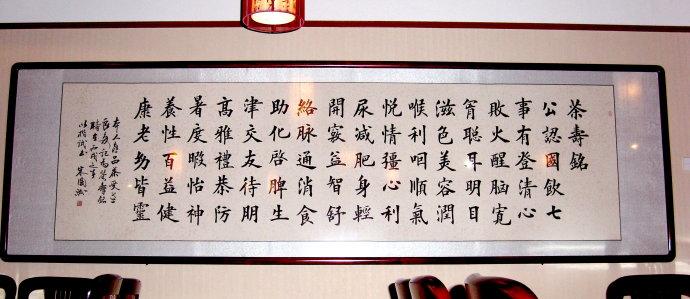 茶壽銘
公認國飲七
事有登清心
敗火醒腦寬
胷聰耳明目
滋色美容潤
喉利咽順氣
悅情彊心利
尿減肥身輕
開竅益智舒
絡脉通消食
助化啓脾生
津交友待朋
高雅禮恭防
暑度暇怡神
養性百益健
康老幼皆靈